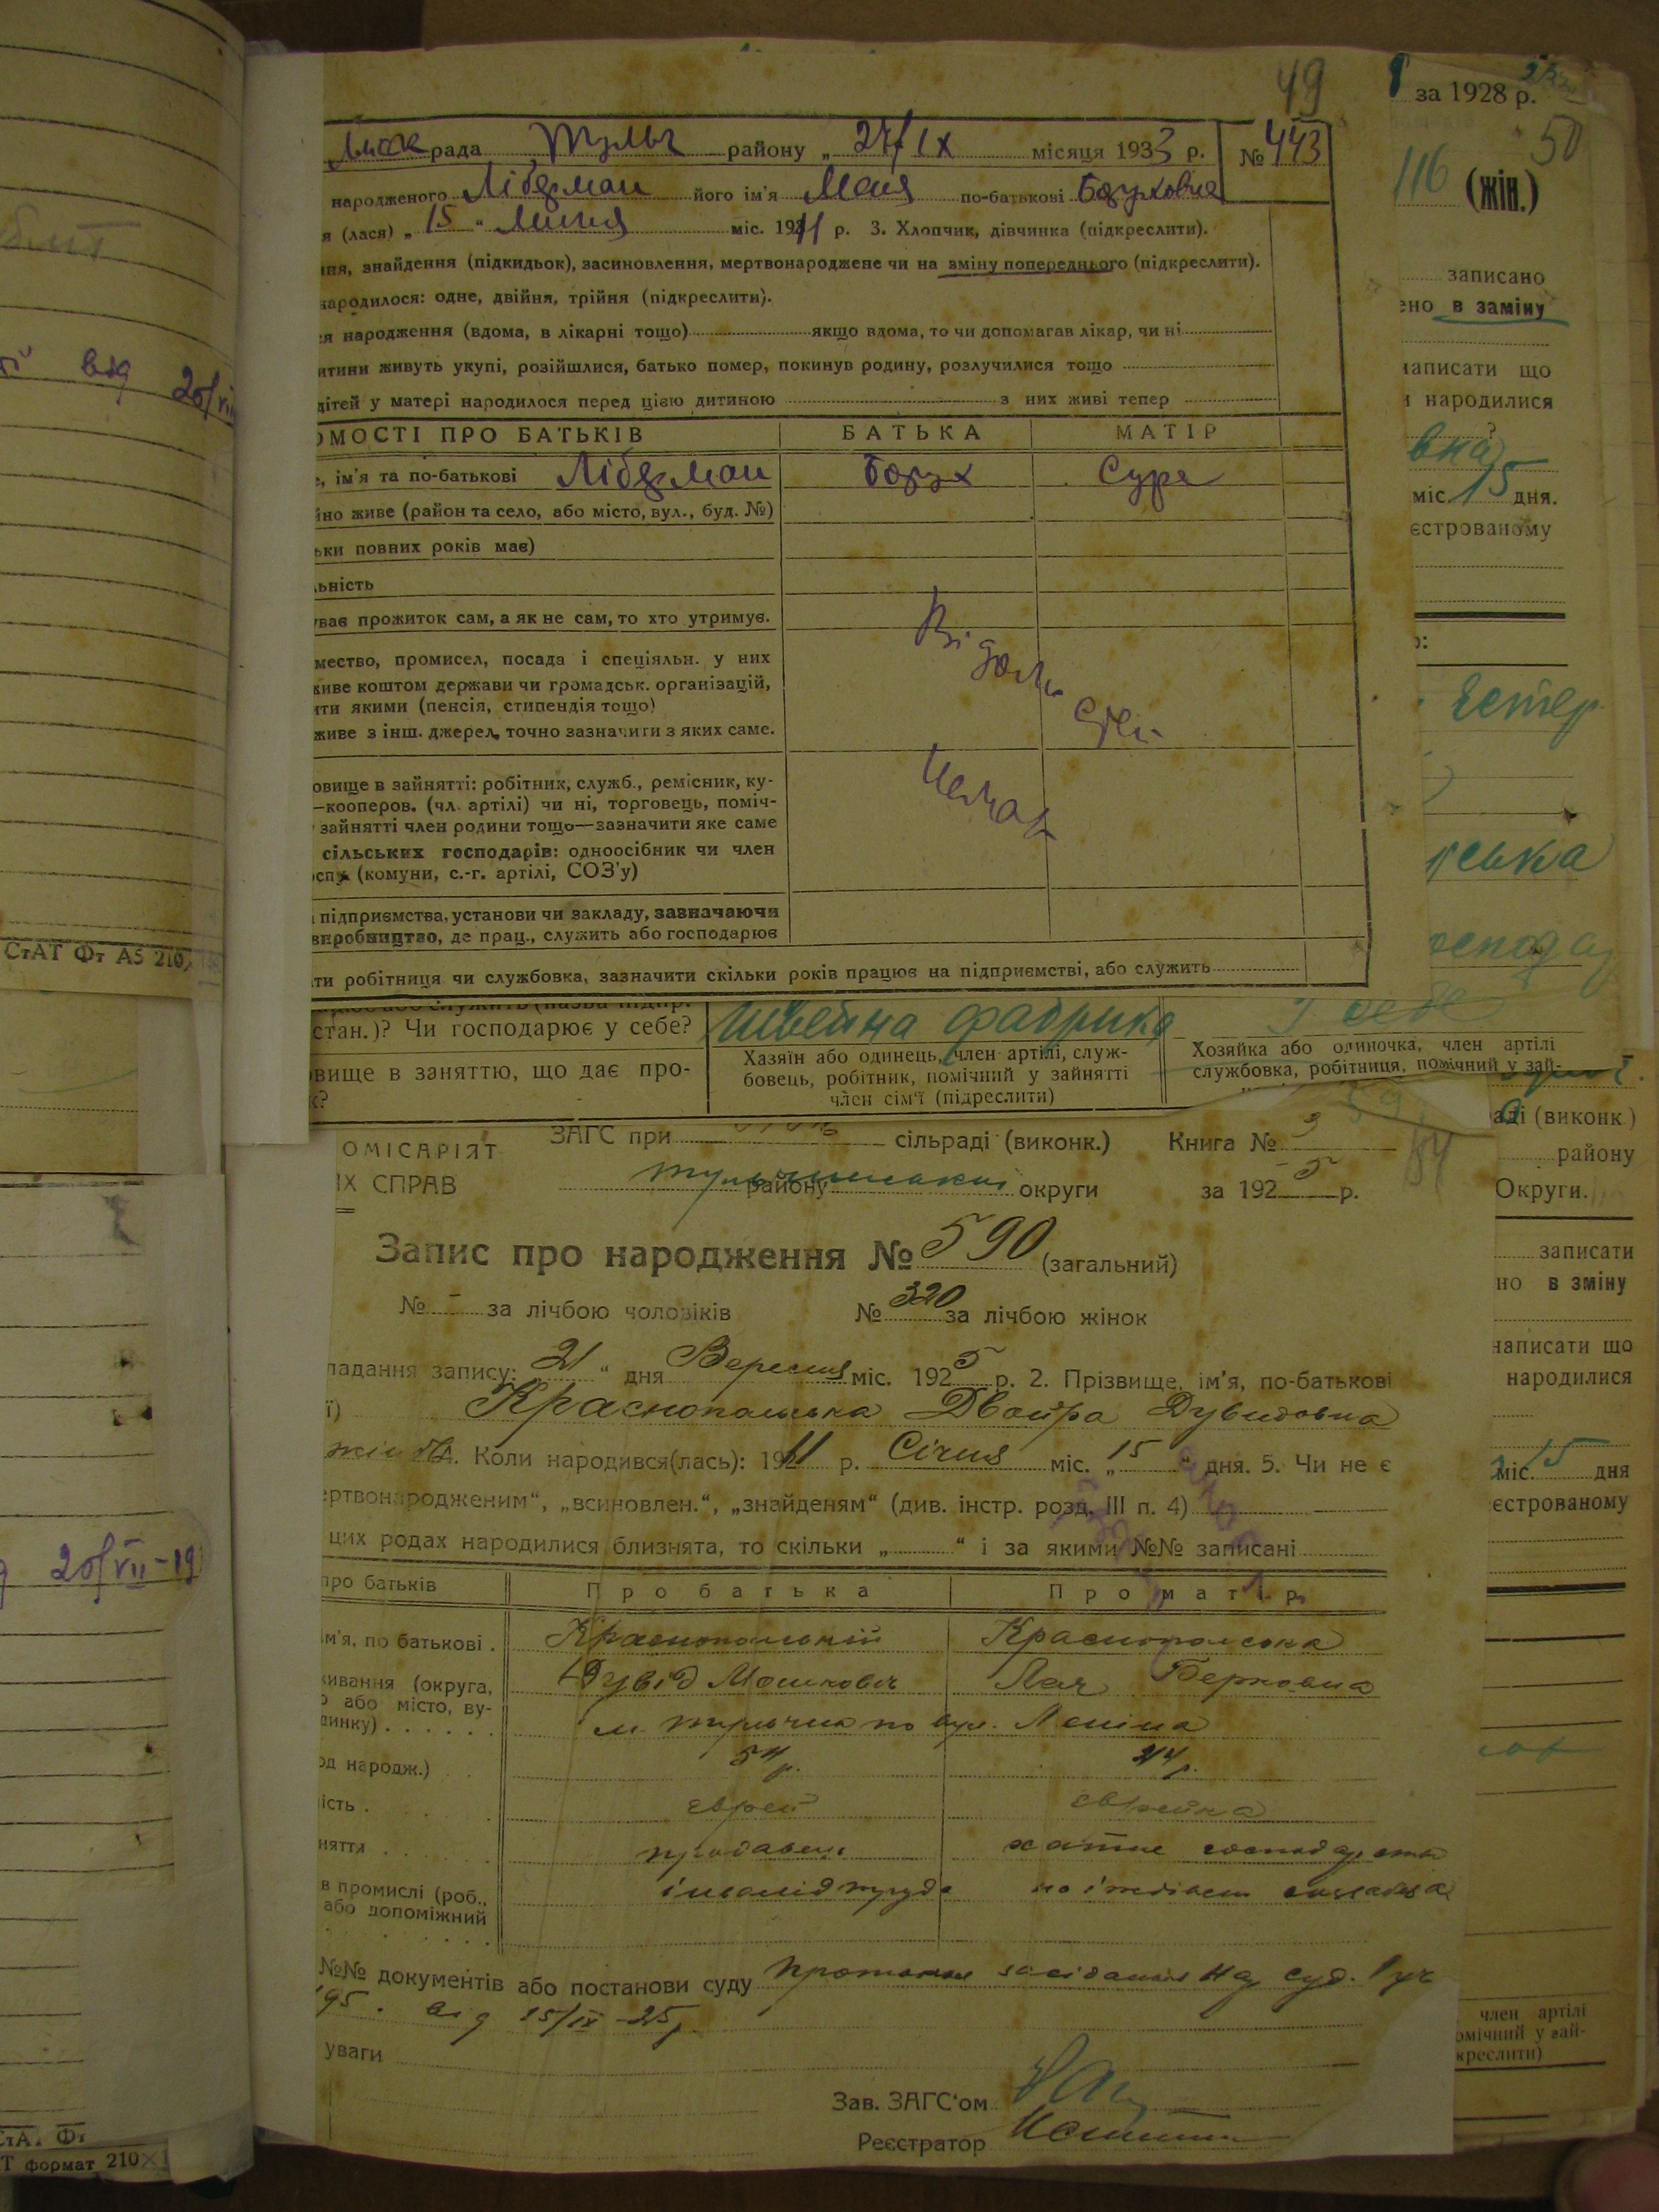 49
рада Тульч району „ 27/IX місяця 1933 р. № 443
народженого Ліберман його ім'я Маня по-батькові Боруховна
я (лася) „ 15 " Липня міс. 1911 р. 3. Хлопчик, дівчинка (підкреслити).
ння, знайдення (підкидьок), засиновлення, мертвонароджене чи на зміну попереднього (підкреслити).
народилося: одне, двійня, трійня (підкреслити).
ся народження (вдома, в лікарні тощо) якщо вдома, то чи допомагав лікар, чи ні
итини живуть укупі, розійшлися, батько помер, покинув родину, розлучилися тощо
дітей у матері народилося перед цією дитиною з них живі тепер
ОМОСТІ ПРО БАТЬКІВ БАТЬКА МАТІР
е, ім'я та по-батькові Ліберман Борух Сура
йно живе (район та село, або місто, вул., буд. №)
ьки повних років має)
льність
ував прожиток сам, а як не сам, то хто утримує.
мество, промисел, посада і спеціяльн. у них
живе коштом держави чи громадськ. організацій,
ити якими (пенсія, стипендія тощо)
живе з інш. джерел, точно зазначити з яких саме.
Відом
стей
немає
овище в зайнятті: робітник, служб., ремісник, ку-
—кооперов. (чл. артілі) чи ні, торговець, поміч-
зайнятті член родини тощо—зазначити яке саме
сільських господарів: одноосібник чи член
оспу (комуни, с.-г. артілі, СОЗ'у)
підприємства, установи чи закладу, зазначаючи
виробництво, де прац., служить або господарює
ти робітниця чи службовка, зазначити скільки років працює на підприємстві, або служить
стан.)? Чи господарює у себе? Швейна фабрика У себе
Хазяїн або одинець, член артілі, служ-
бовець, робітник, помічний у зайнятті
член сім'ї (підреслити)
Хозяйка або одиночка, член артілі
службовка, робітниця, помічний у зай-
овище в заняттю, що дає про-
к?
ОМІСАРІЯТ ЗАГС при сільраді (виконк.) Книга № 3
ІХ СПРАВ району Тульчинський округи за 1925 р.
Запис про народження № 590 (загальний)
№ - за лічбою чоловіків № 320 за лічбою жінок
ладання запису: 21 " дня Вересня міс. 1925 р. 2. Прізвище, ім'я, по-батькові
ї) Краснопольська Двойра Дувидовна
Коли народився(лась): 1911 р. Січня міс. „ 15 " дня. 5. Чи не є
ертвонародженим“, „всиновлен.“, „знайденям“ (див. інстр. розд. III п. 4)
цих родах народилися близнята, то скільки „ “ і за якими №№ записані
про батьків Про батька Про матір
м'я, по батькові . Краснопольській Краснопольська
Дувід Мошкович Лея Берковна
живання (округа,
о або місто, ву-
динку) м. Тульчин по вул. Леніна
од народж.) 54 р. 44 р.
ість . єврей єврейка
няття продавець хатнє господарство
в промислі (роб.,
або допоміжний
інвалід труда
№№ документів або постанови суду протокол засідання Нар суд. 1 уч
95. від 15/IX-25р.
уваги
Зав. ЗАГС'ом
Реєстратор
за 1928 р.
50
116 (жін.)
записано
ено в заміну
написати що
народилися
вна
міс. 15 дня.
єстрованому
Естер
ська
аді (виконк.)
району
Округи.
записати
но в зміну
написати що
народилися
міс. 15 дня
єстрованому
член артілі
омічний у зай-
креслити)
від 20/VII
СтАТ Фт А5 210
20/VII-19
Т формат 210×